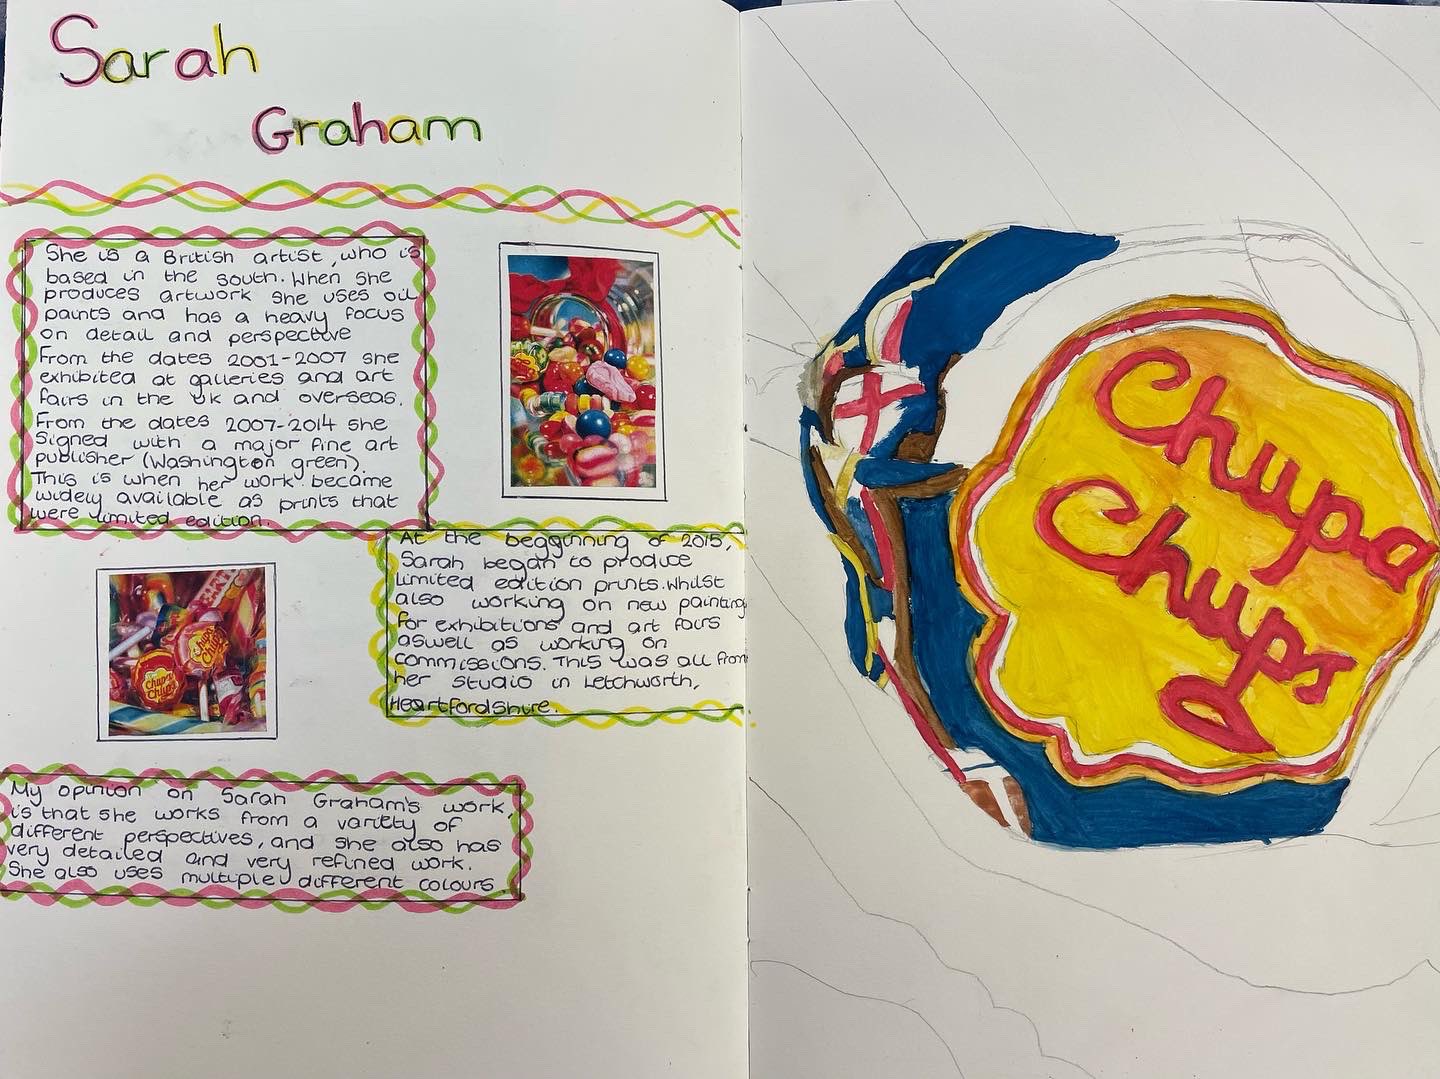 Sarah
Graham
She is a British artist, who is
based in the south. When she
produces artwork she uses oil
paints and has a heavy focus
on detail and perspective
From the dates 2001-2007 she
exhibited at galleries and art
fairs in the uk and overseas.
From the dates 2007-2014 she
signed with a major fine art
publisher (Washington green).
This is when her work became
widely available as prints that
were limited edition.
At the beggining of 2015,
Sarah began to produce
limited edition prints. Whilst
also working on new painting
for exhibitions and art fairs
aswell as working on
commissions. This was all from
her studio in Letchworth,
Heartfordshire.
Chupa
Chups
Chupa
Chups
My opinion on Sarah Graham's work,
is that she works from a variety of
different perspectives, and she also has
very detailed and very refined work.
She also uses multiple different colours.
Chupa
Chups